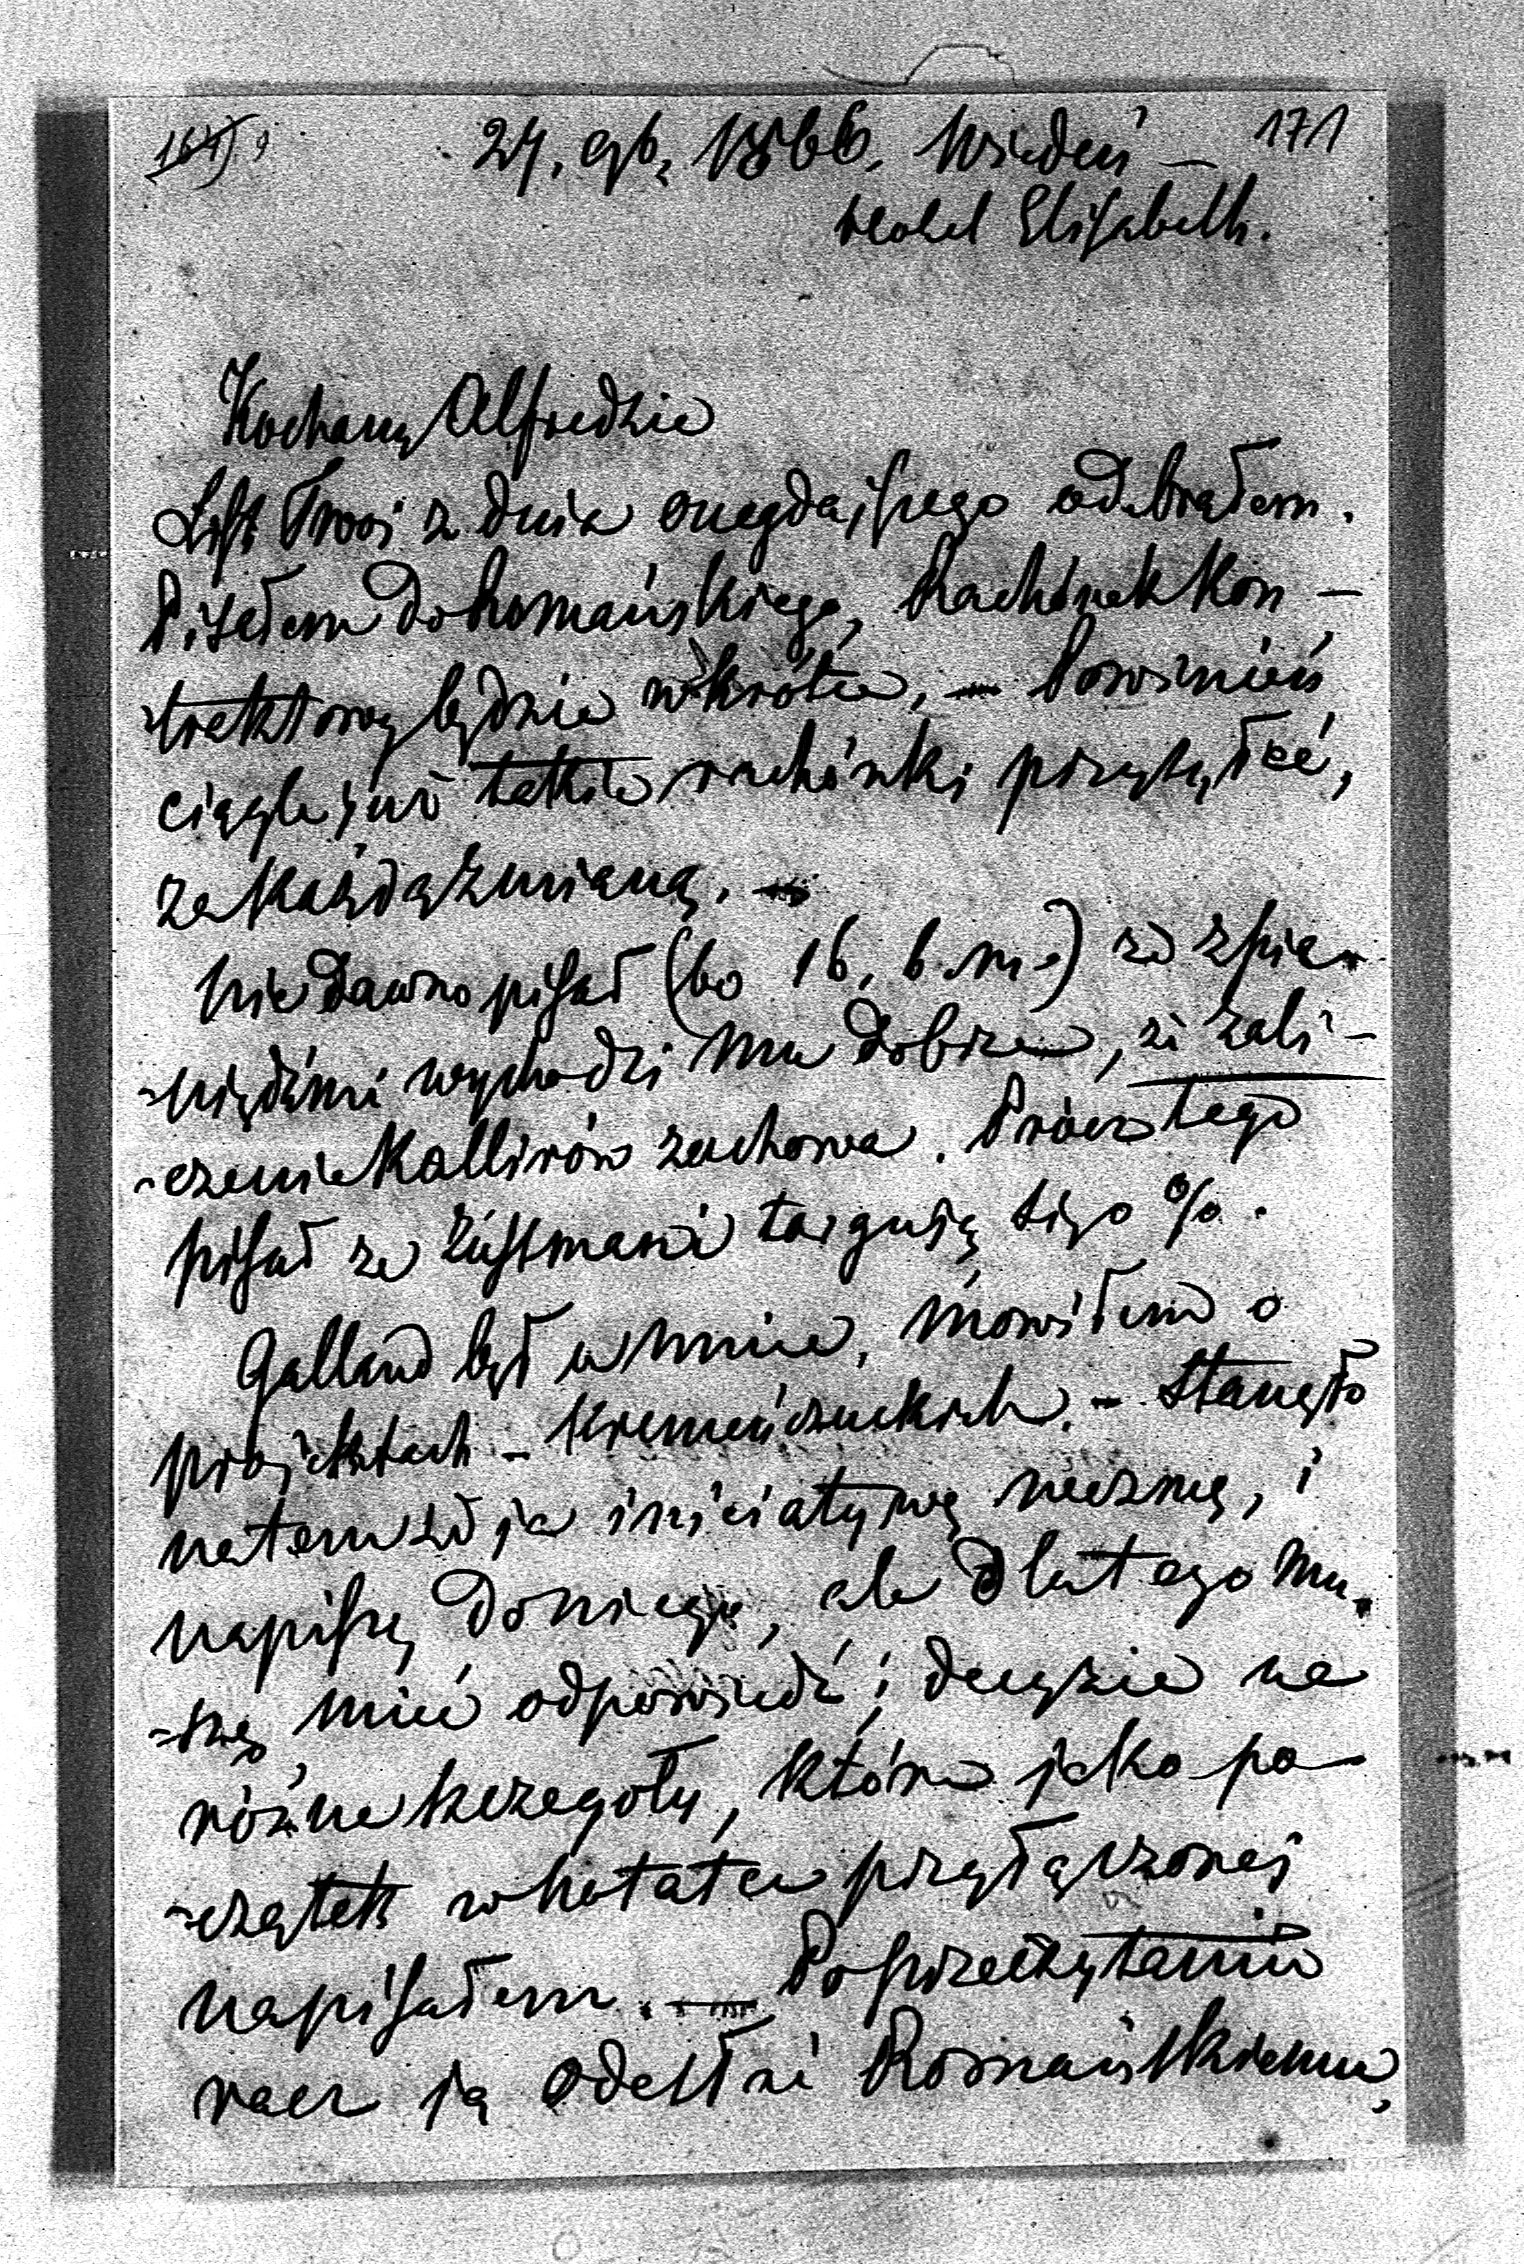 24. 9b. 1866. Wiedeń — 171
Hotel Elisabeth.
Kochany Alfredzie
List Twoj z dnia onegdajszego odebrałem.
Pisałem do Romańskiego, Rachónek kon-
-traktowy będzie wkrótce, — Powinień
ciągle już takie rachónki przysyłać,
za każdą zmianą. —
Niedawno pisał (bo 16. b. m.) że z pie-
-niędzmi wychodzi mu dobrze, że zali-
-czenie Kallirów zachowa. Prócz tego
pisał że Zusmani targują się o %.
Galland był u mnie, mówiłem o
projektach – Kremeńczuckich. – Stanęło
na tem że ja iniciatywę ucznię, i
napiszę do niego, ale dla tego mu-
-szę mieć odpowiedź i decyzie na
różne szczegoły, które jako po-
-czątek w notatce przyłączonej
napisałem. — Po przeczytaniu
racz ją odesłać Romańskiemu,